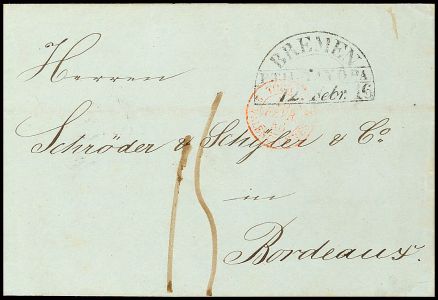 BREMEN
12. Febr.
Herren
Schröder & Schÿler & Co
in
Bordeaux.
15